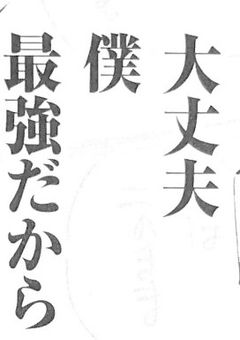 大丈夫
僕
最強だから